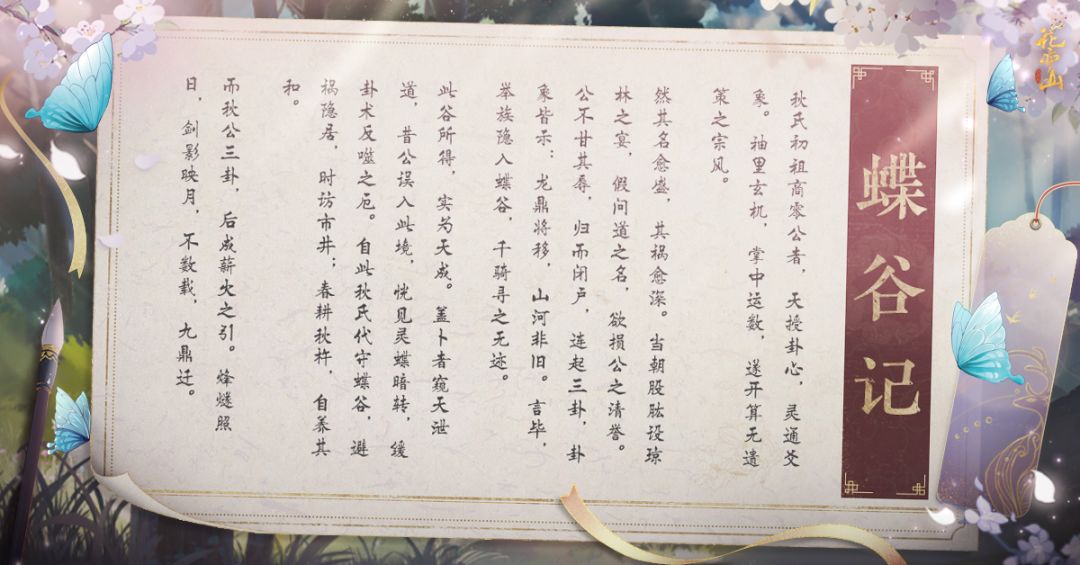 蝶谷记
秋氏初祖商零公者，天授卦心，灵通爻
象。袖里玄机，掌中运数，遂开算无遗
策之宗风。
然其名愈盛，其祸愈深。当朝股肱设琼
林之宴，假问道之名，欲损公之清誉。
公不甘其辱，归而闭户，连起三卦，卦
象皆示：龙鼎将移，山河非旧。言毕，
举族隐入蝶谷，千骑寻之无迹。
此谷所得，实为天成。盖卜者窥天泄
道，昔公误入此境，恍见灵蝶暗转，缓
卦术反噬之厄。自此秋氏代守蝶谷，避
祸隐居，时坊市井；春耕秋杵，自养其
和。
而秋公三卦，后成薪火之引。烽燧照
日，剑影映月，不数载，九鼎迁。
花亦山